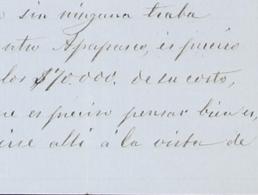 sin ninguna traba
Apapasco, es preciso
los $70.000. de su costo,
es preciso pensar bien es
irse allí á la vista de